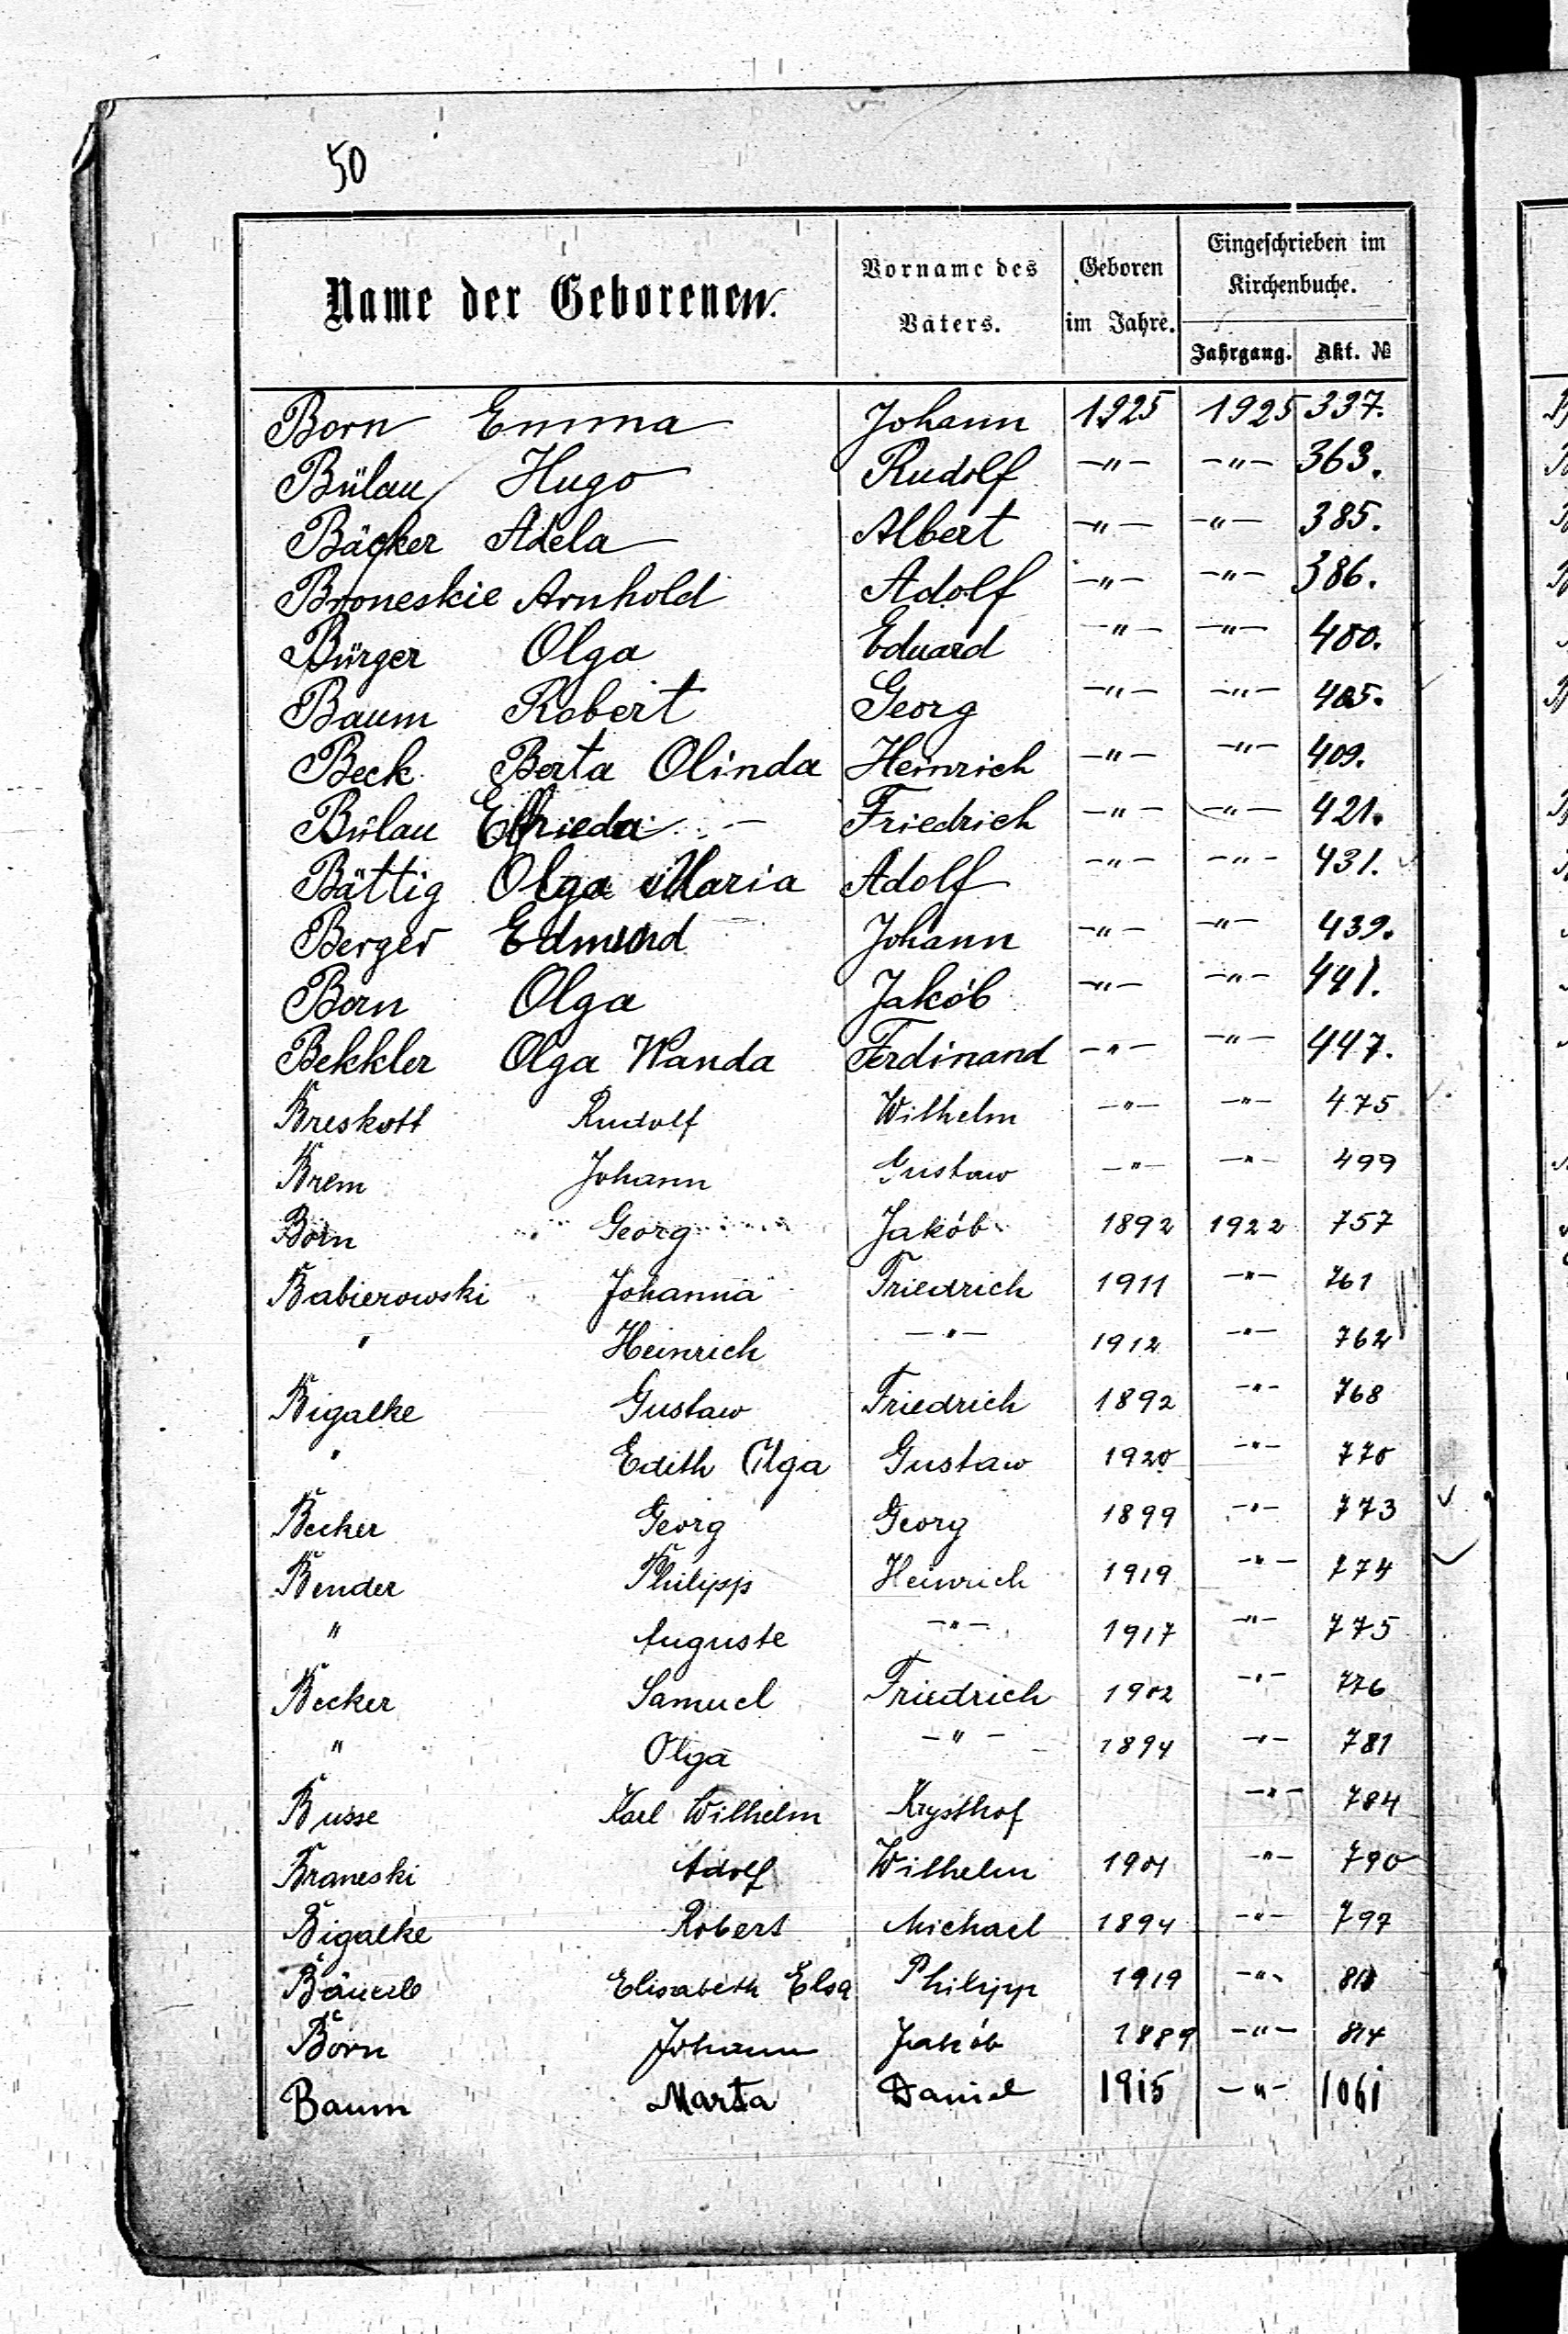 50
Name der Geborenen. Vorname des Vaters. Geboren im Jahre. Eingeschrieben im Kirchenbuche.
Jahrgang. Akt. №
Born Emma Johann 1925 1925 337.
Bülau Hugo Rudolf —"— —"— 363.
Bäcker Adela Albert —"— —"— 385.
Broneskie Arnhold Adolf —"— —"— 386.
Bürger Olga Eduard —"— —"— 400.
Baum Robert Georg —"— —"— 405.
Beck Berta Olinda Heinrich —"— —"— 409.
Bülau Elfrieda Friedrich —"— —"— 421.
Bättig Olga Maria Adolf —"— —"— 431.
Berger Edmund Johann —"— —"— 439.
Born Olga Jakób —"— —"— 441.
Bekkler Olga Wanda Ferdinand —"— —"— 447.
Breskott Rudolf Wilhelm —"— —"— 475
Brem Johann Gustaw —"— —"— 499
Born Georg Jakób 1892 1922 757
Babierowski Johanna Friedrich 1911 —"— 761
" Heinrich —"— 1912 —"— 762
Bigalke Gustaw Friedrich 1892 —"— 768
" Edith Olga Gustaw 1920 —"— 770
Becker Georg Georg 1899 —"— 773
Bender Philipp Heinrich 1919 —"— 774
" Auguste —"— 1917 —"— 775
Becker Samuel Friedrich 1902 —"— 776
" Olga —"— 1894 —"— 781
Busse Karl Wilhelm Krysthof —"— 784
Braneski Adolf Wilhelm 1901 —"— 790
Bigalke Robert Michael 1894 —"— 797
Bäuerle Elisabeth Elsa Philipp 1919 —"—
Born Johann Jakób 1889 —"— 814
Baum Marta Daniel 1915 —"— 1061